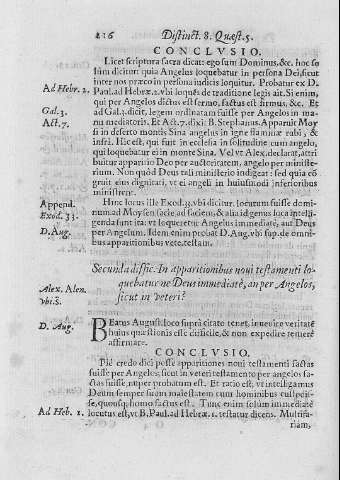 216 Distinct. 8. Quæst. 5.
CONCLVSIO.
Licet scriptura sacra dicat: ego sum Dominus, &c. hoc so
lùm dicitur: quia Angelus loquebatur in persona Dei, sicut
inter nos præco in persona iudicis loquitur. Probatur ex D.
Ad Hebr. 2. Paul. ad Hebræ. 2. vbi loquēs de traditione legis ait. Si enim,
qui per Angelos dictus est sermo, factus est firmus, &c. Et
Gal. 3. ad Gal. 3. dicit, legem ordinatam fuisse per Angelos in ma
Act. 7. nu mediatoris. Et Act. 7. dixit B. Stephanus. Apparuit Moy
si in deserto montis Sina angelus in igne flammæ rubi, &
infrà. Hic est, qui fuit in ecclesia in solitudine cum angelo,
qui loquebatur ei in monte Sina. Vel vt Alex. declarat, attri
buitur apparitio Deo per auctoritatem, angelo per ministe-
rium. Non quòd Deus tali ministerio indigeat: sed quia cō
gruit eius dignitati, vt ei angeli in huiusmodi inferioribus
ministrent.
Append. Hinc locus ille Exod. 33. vbi dicitur, locutum fuisse domi-
Exod. 33. num ad Moysen facie ad faciem, & alia id genus loca intelli-
genda sunt ita: vt loqueretur Angelus immediatè, aut Deus
D. Aug. per Angelum. Idem enim probat D. Aug. vbi sup. de omni-
bus apparitionibus vete. testam.
Secunda diffic. In apparitionibus noui testamenti lo-
Alex. Alen. quebatur ne Deus immediatè, an per Angelos,
vbi. S. sicut in veteri?
D. Aug. BEatus August. loco suprà citato tenet, inuenire veritatē
huius quæstionis esse difficile, & non expedire temerè
affirmare.
CONCLVSIO.
Piè credo dici posse apparitiones noui testamenti factas
fuisse per Angelos, sicut in veteri testamento per angelos fa-
ctas fuisse, nuper probatum est. Et ratio est, vt intelligamus
Deum semper suam maiestatem cum hominibus custodis-
se, quousq; homo factus est. Tunc enim solùm immediatè
Ad Heb. 1. locutus est, vt B. Paul. ad Hebræ. 1. testatur dicens. Multifa-
riam,